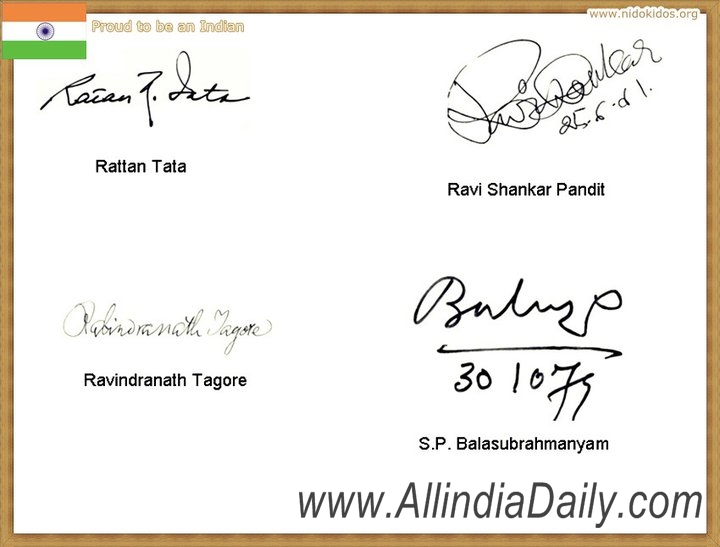 www.nidokidos.org
Proud to be an Indian
Ratan N. Tata
Rattan Tata
Ravi Shankar
25.6.81.
Ravi Shankar Pandit
Rabindranath Tagore
Ravindranath Tagore
Balu
30 10 79
S.P. Balasubrahmanyam
www.AllindiaDaily.com